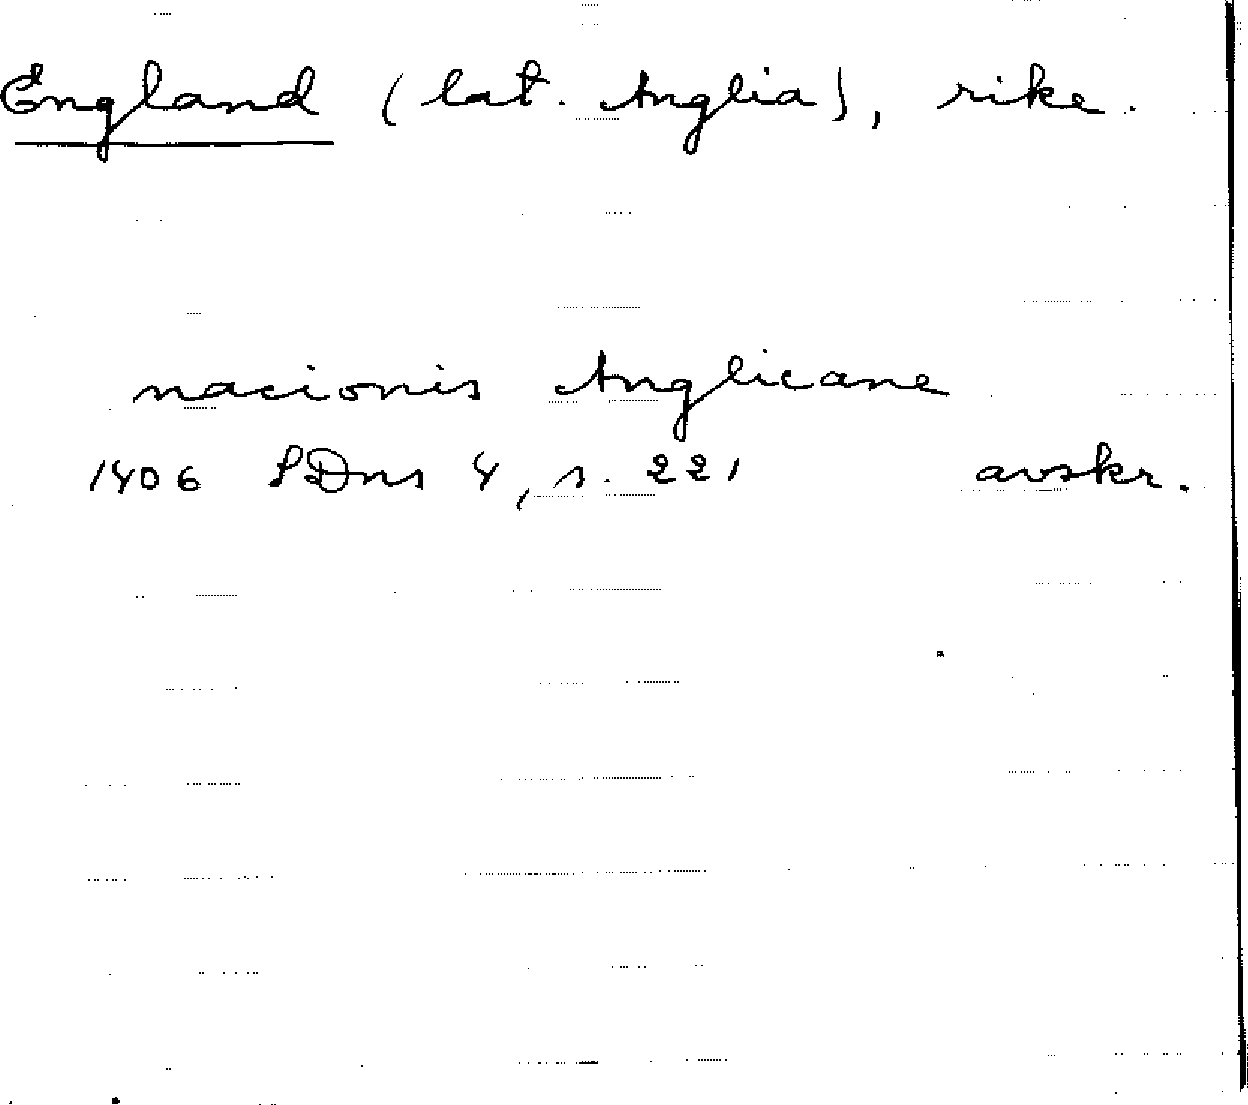 England (lat. Anglia), rike.
nacionis Anglicane
1406 SDns 4, s. 221 avskr.